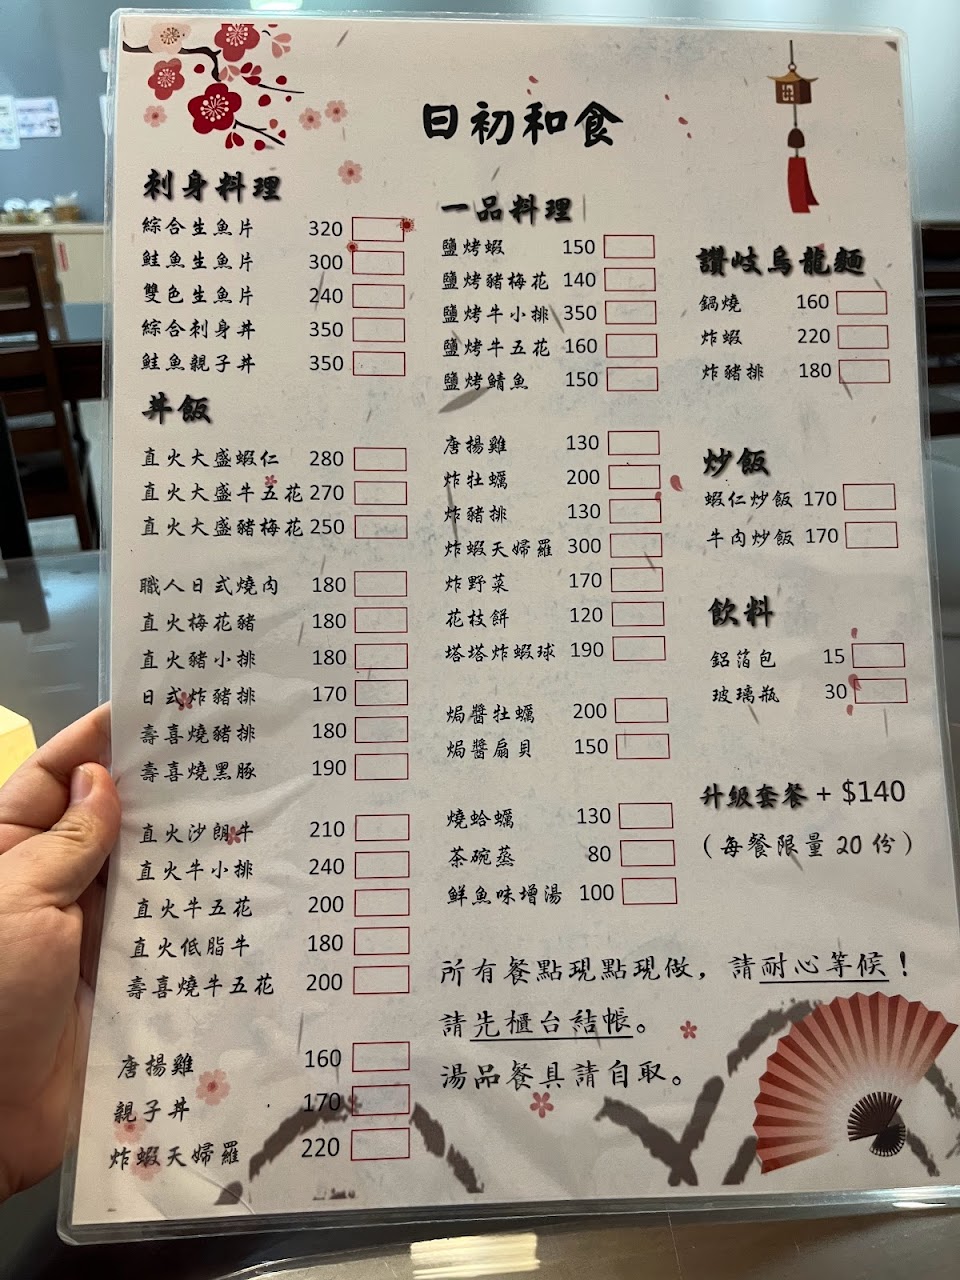 日初和食
刺身料理
綜合生魚片 320
鮭魚生魚片 300
雙色生魚片 240
綜合刺身丼 350
鮭魚親子丼 350
丼飯
直火大盛蝦仁 280
直火大盛牛五花 270
直火大盛豬梅花 250
職人日式燒肉 180
直火梅花豬 180
直火豬小排 180
日式炸豬排 170
壽喜燒豬排 180
壽喜燒黑豚 190
直火沙朗牛 210
直火牛小排 240
直火牛五花 200
直火低脂牛 180
壽喜燒牛五花 200
唐揚雞 160
親子丼 170
炸蝦天婦羅 220
一品料理
鹽烤蝦 150
鹽烤豬梅花 140
鹽烤牛小排 350
鹽烤牛五花 160
鹽烤鯖魚 150
唐揚雞 130
炸牡蠣 200
炸豬排 130
炸蝦天婦羅 300
炸野菜 170
花枝餅 120
塔塔炸蝦球 190
焗醬牡蠣 200
焗醬扇貝 150
燒蛤蠣 130
茶碗蒸 80
鮮魚味增湯 100
讚岐烏龍麵
鍋燒 160
炸蝦 220
炸豬排 180
炒飯
蝦仁炒飯 170
牛肉炒飯 170
飲料
鋁箔包 15
玻璃瓶 30
升級套餐 + $140
（每餐限量 20 份）
所有餐點現點現做，請耐心等候！
請先櫃台結帳。
湯品餐具請自取。